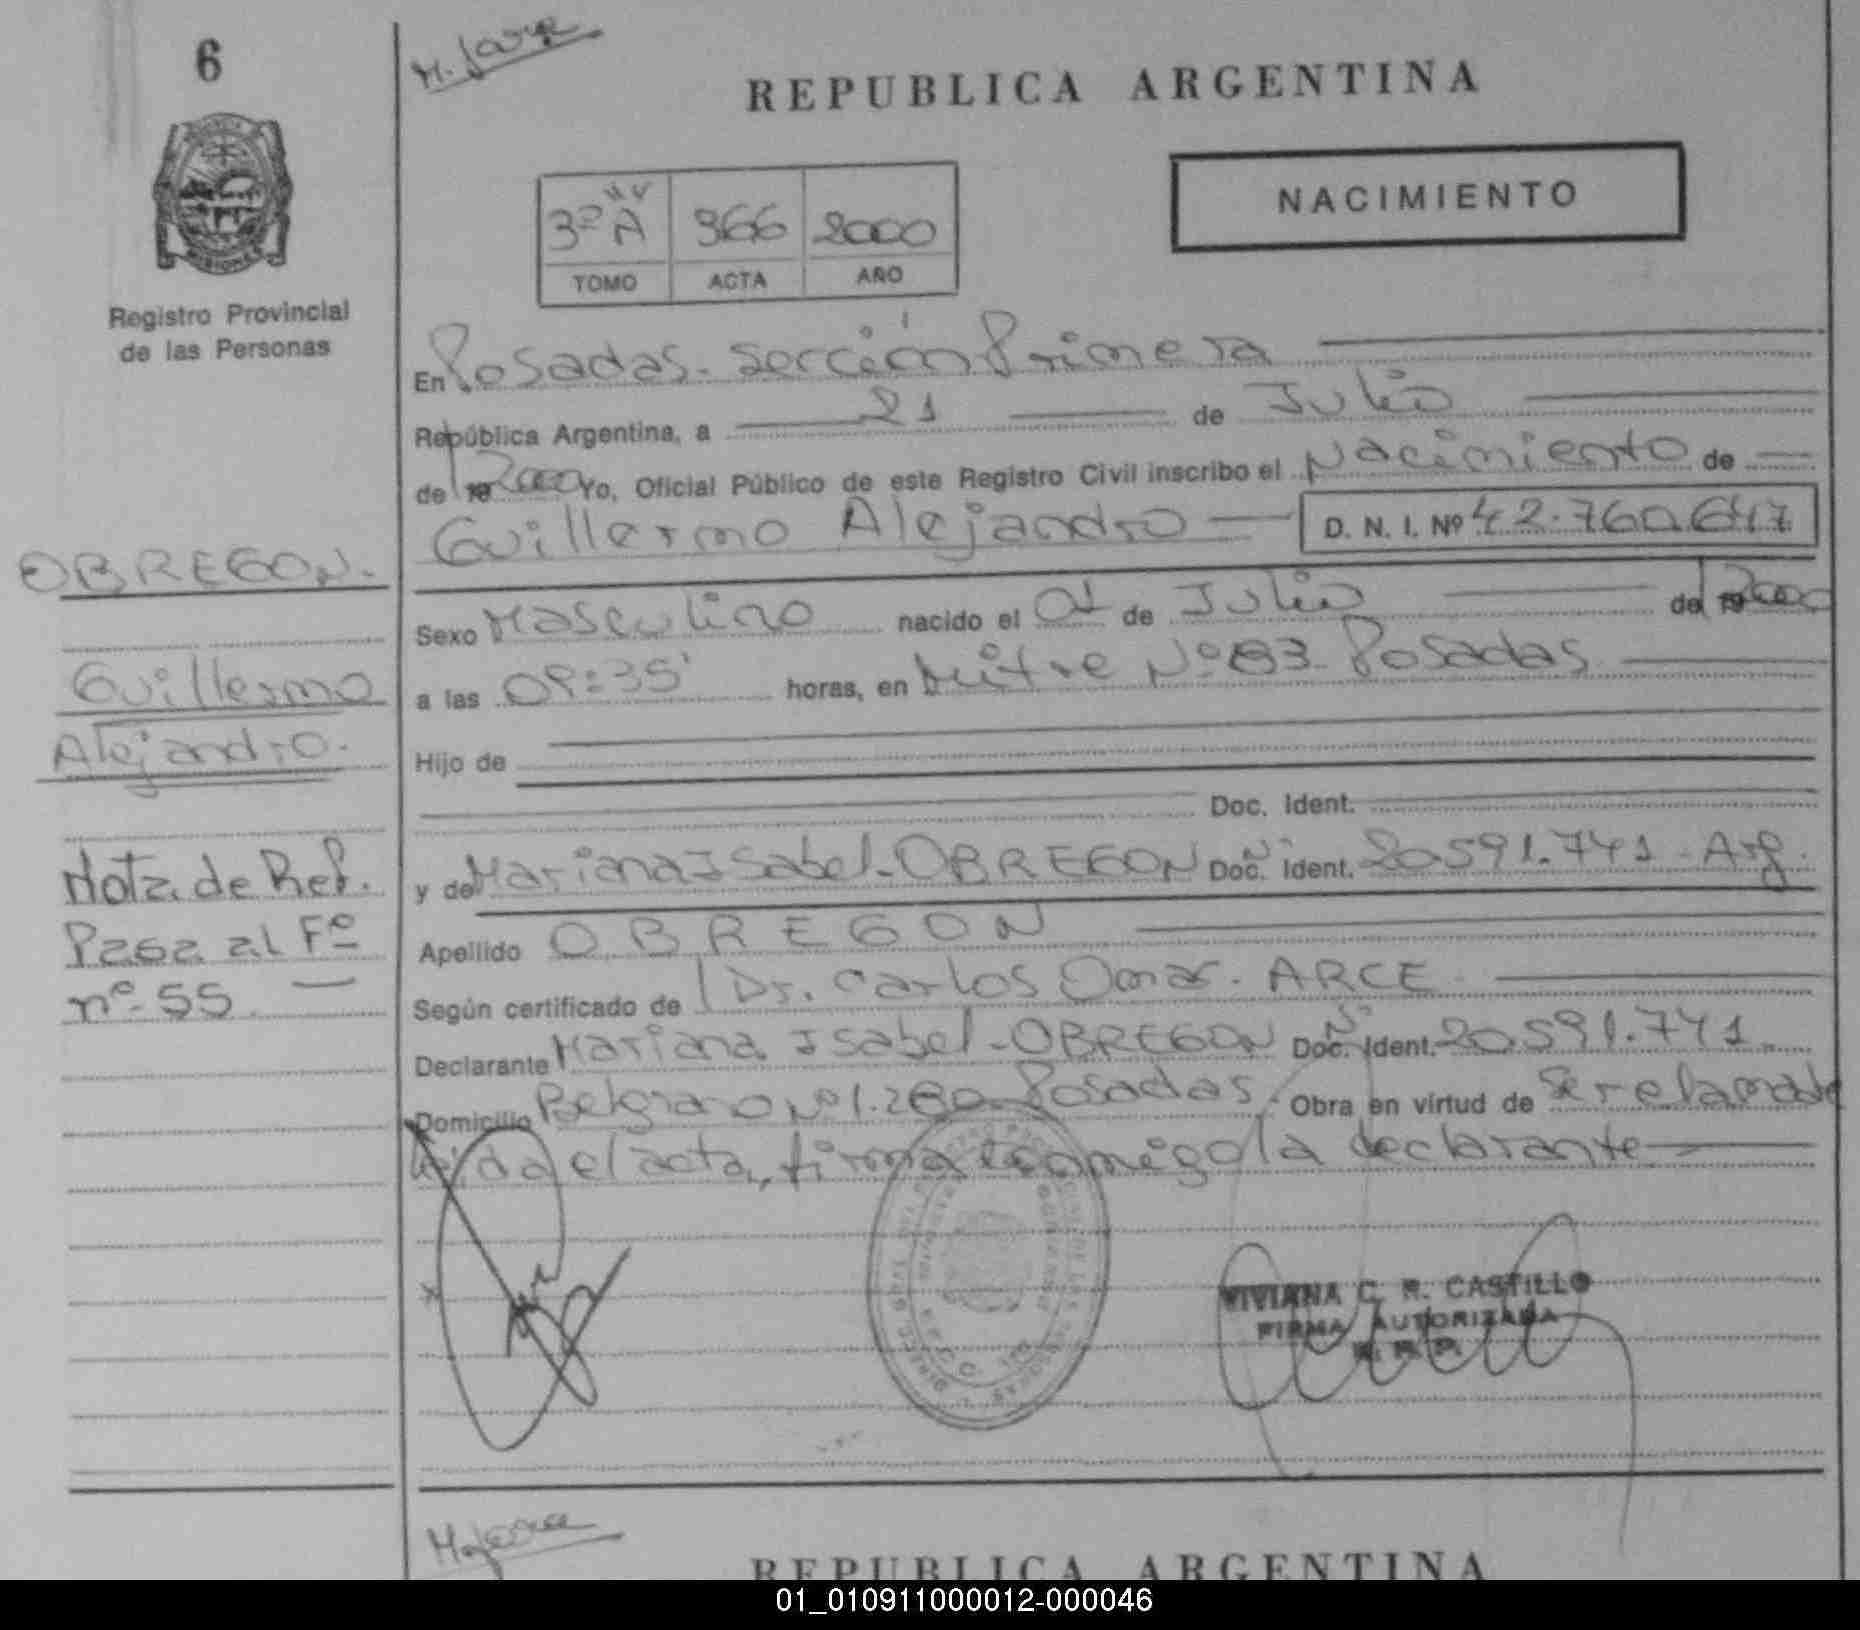 6
REPUBLICA ARGENTINA
NACIMIENTO
3º A 966 2000
TOMO ACTA AÑO
MISIONES
Registro Provincial
de las Personas
En Posadas. Sección Primera
República Argentina, a 21 de Julio
de 19 2000 Yo, Oficial Público de este Registro Civil inscribo el Nacimiento de
Guillermo Alejandro D. N. I. Nº 42.760.647
OBREGON.
Sexo Masculino nacido el 01 de Julio de 19 2000
Guillermo
a las 09:35' horas, en Mitre Nº 83 Posadas
Alejandro.
Hijo de
Doc. Ident.
Nota de Ref.
y de Mariana Isabel-OBREGON Doc. Ident. Nº 20.591.741-Arg.
Pasa al Fº
Apellido OBREGON
nº 55
Según certificado de Dr. Carlos Omar. ARCE
Declarante Mariana Isabel-OBREGON Doc. Ident. Nº 20.591.741
Domicilio Belgrano Nº 1.280 Posadas Obra en virtud de ser el
leida el acta, firma conmigo la declarante
VIVIANA C. R. CASTILLO
FIRMA AUTORIZADA
R. P. P.
REPUBLICA ARGENTINA
01_010911000012-000046